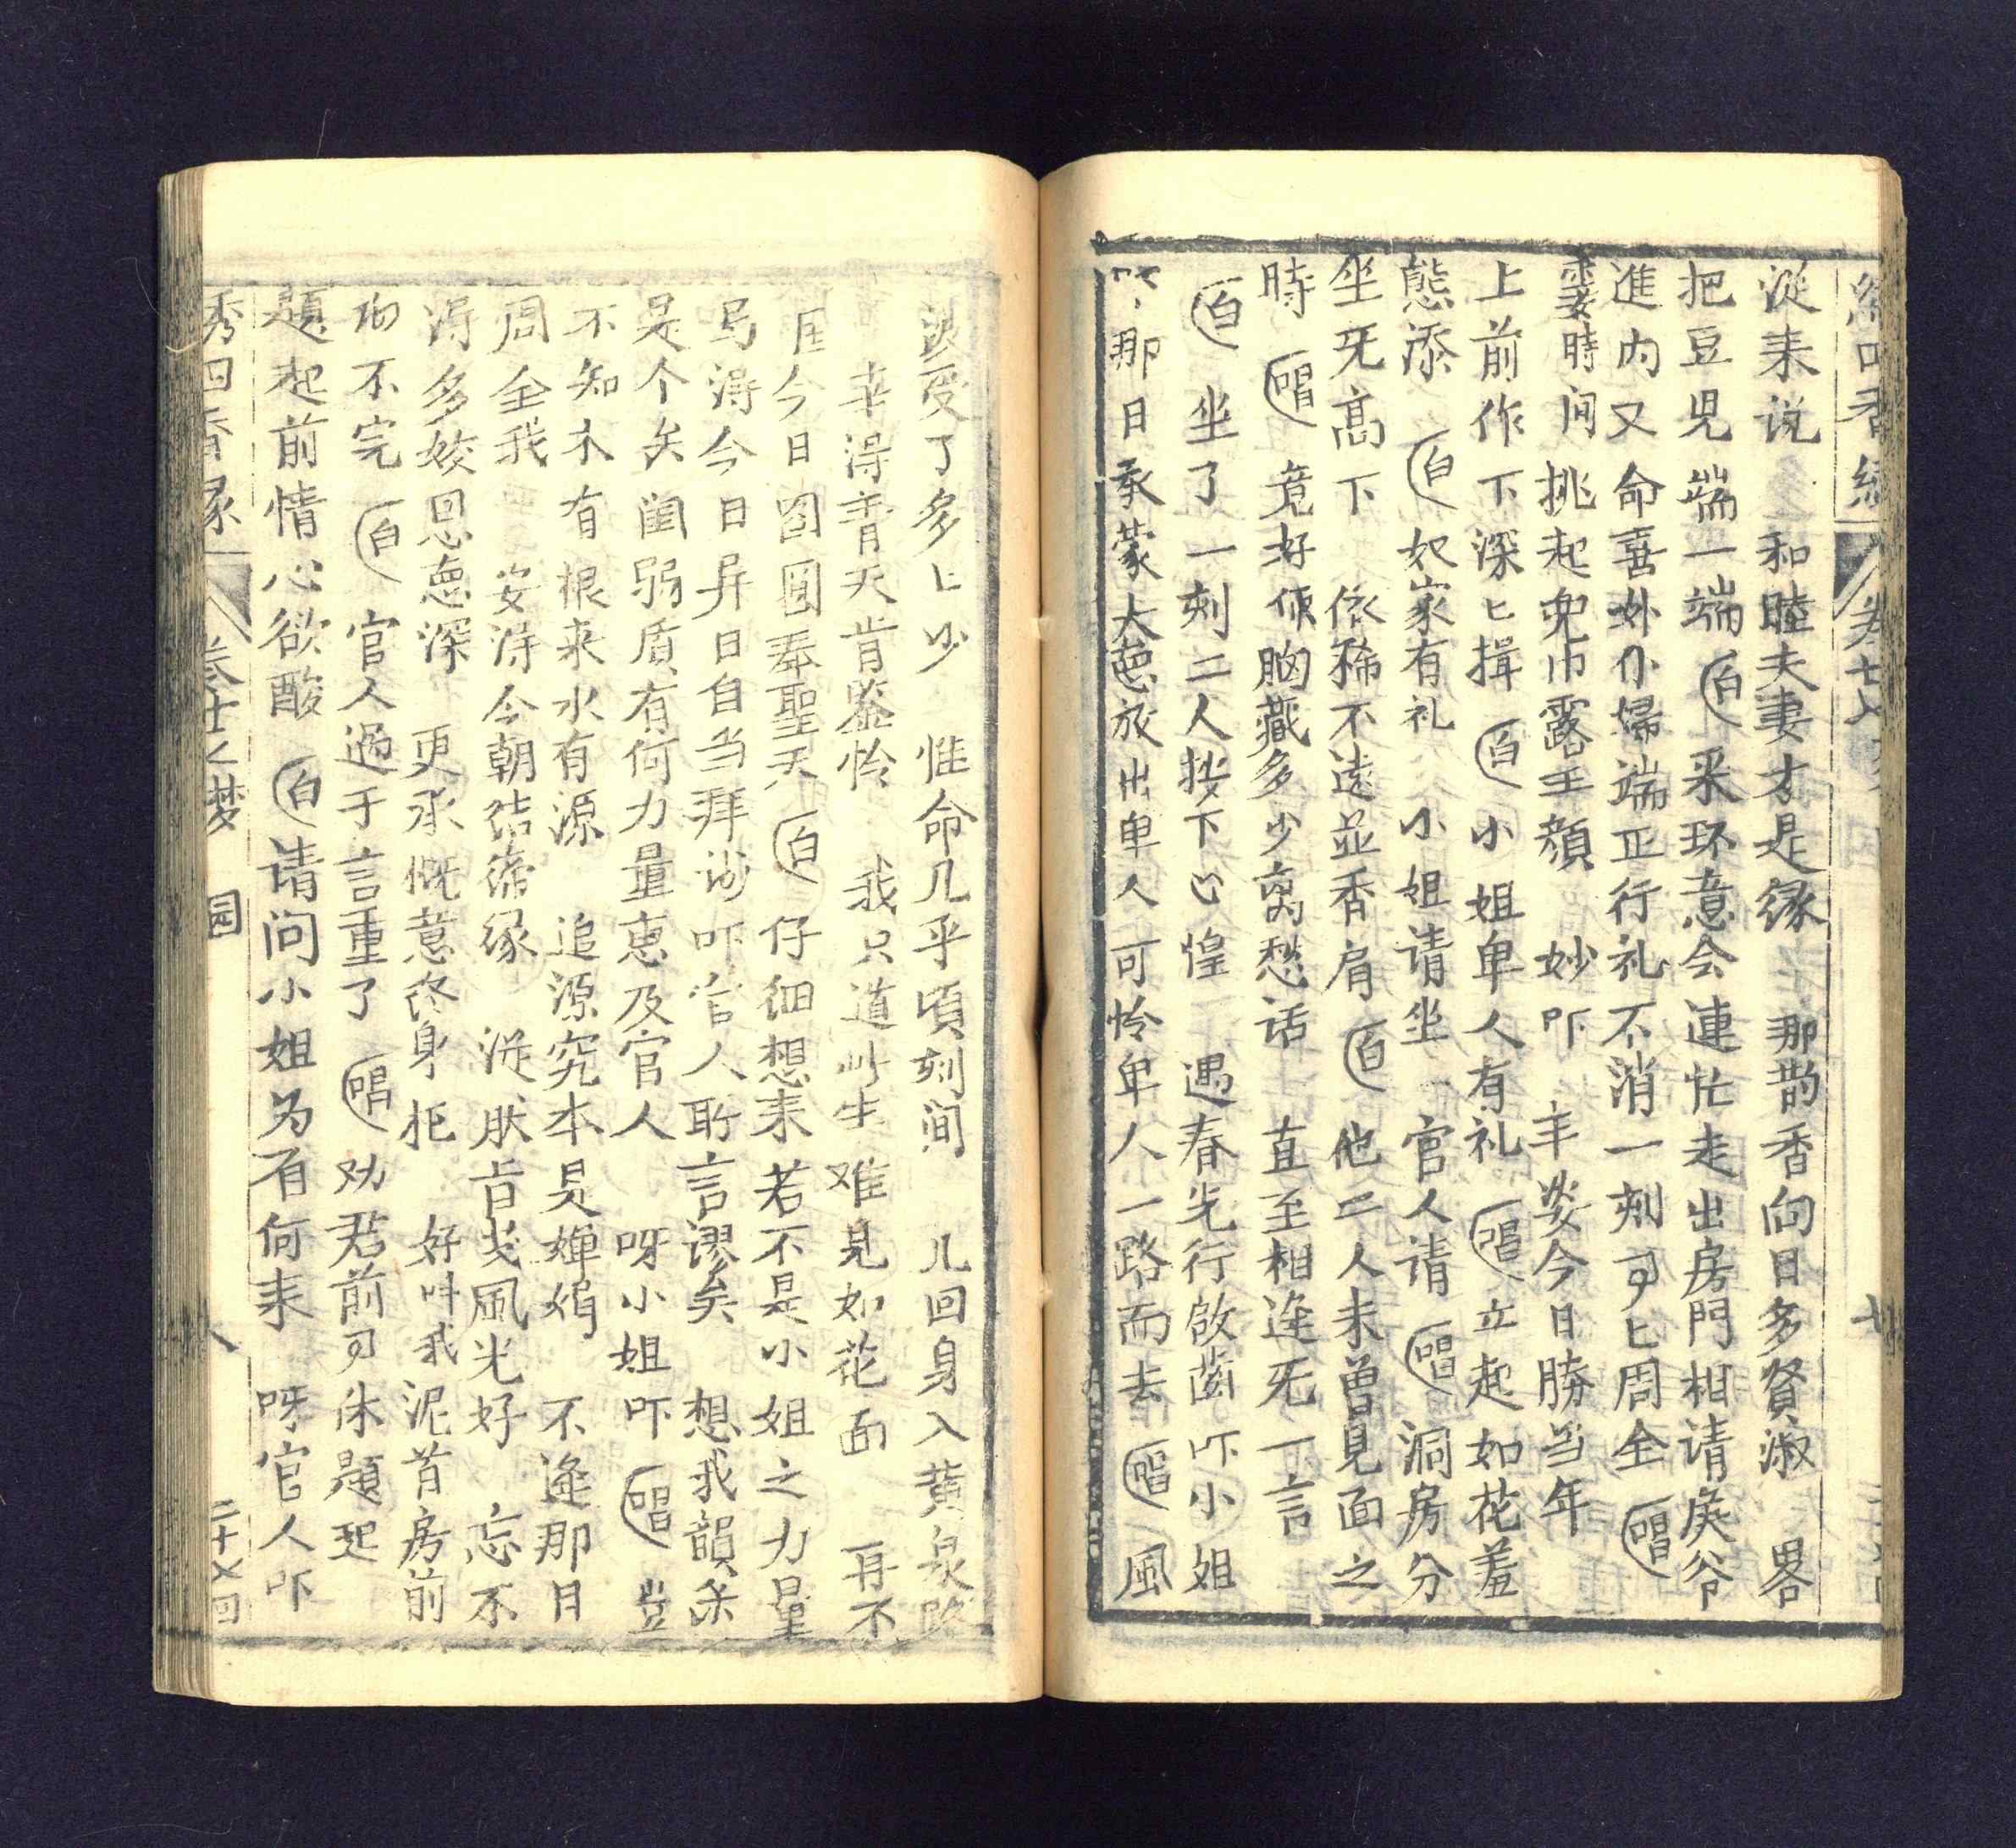 涎耒说 和睦夫妻才是缘 那諎香向日多賢淑 畧
把豆児端一端 白 釆环意会連忙走出房門相请侯爷
進内又命喜外仆婦端正行礼不消一刻事匕周全 唱
霎時间挑起兜巾露玉顔 妙吓 丰姿今日勝当年
上前作下深匕揖 白 小姐卑人有礼 唱 立起如花羞
態添 白 奴家有礼 小姐请坐 官人请 唱 洞房分
坐旡髙下 依稀不遠並香肩 白 他二人未曾見面之
時 唱 竟好傾胸藏多少离愁话 直至相逢旡一言
白 坐了一刻二人按下心惶 遇春先行啟齒吓小姐
那日承蒙大恩放出卑人可怜卑人一路而去 唱 風
波受了多上少 惟命几乎頃刻间 儿回身入黄泉路
幸得青天肯鉴怜 我只道此生难見如花面 再不
今日囹圄奉聖天 白 仔细想耒若不是小姐之力量
焉得今日异日自当拜谢吓官人耵言謬矣 想我韻釆
是个矣闺弱质有何力量恵及官人 呀小姐吓 唱 豈
不知木有根来水有源 追源究本是嬋娟 不逢那日
周全我 安得今朝结蒂缘 涎肤肯戋風光好 忘不
得多姣恩恵深 更承慨意终身托 好叫我泥首房前
扣不完 白 官人過于言重了 唱 劝君前事休題起
題起前情心欲酸 白 请问小姐为有何耒 呀官人吓
秀四香緣 卷十七夢 圆 二十乂回